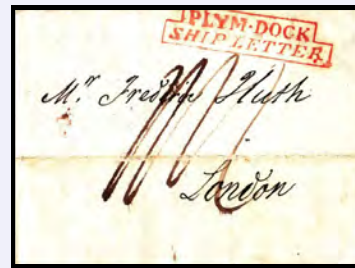 PLYM·DOCK
SHIP LETTER
Mr Frederic Huth
London